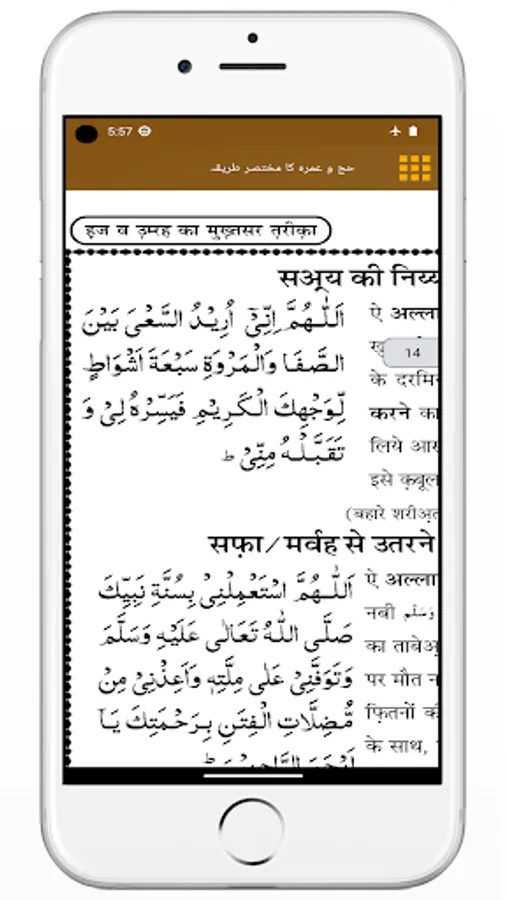 5:57
حج و عمرہ کا مختصر طریقہ
ह़ज व उ़मरह का मुख़्तसर त़रीक़ा
सअ़्य की निय्य
اَللّٰهُمَّ اِنِّیْۤ اُرِیْدُ السَّعْیَ بَیْنَ
ऐ अल्ला
الصَّفَا وَالْمَرْوَةِ سَبْعَةَ اَشْوَاطٍ
14
के दरमि
لِّوَجْهِكَ الْكَرِیْمِ فَیَسِّرْهُ لِیْ وَ
करने का
تَقَبَّلْهُ مِنِّیْ ط
लिये आस
इसे क़बूल
(बहारे शरीअ़त
सफ़ा/मर्वह से उतरने
اَللّٰهُمَّ اسْتَعْمِلْنِیْ بِسُنَّةِ نَبِیِّكَ
ऐ अल्ला
صَلَّی اللّٰهُ تَعَالٰی عَلَیْهِ وَسَلَّمَ
नबी وَسَلَّم
का ताबेअ़
وَتَوَفَّنِیْ عَلٰی مِلَّتِهٖ وَاَعِذْنِیْ مِنْ
पर मौत न
مُّضِلَّاتِ الْفِتَنِ بِرَحْمَتِكَ یَاۤ
फ़ितनों की
के साथ,